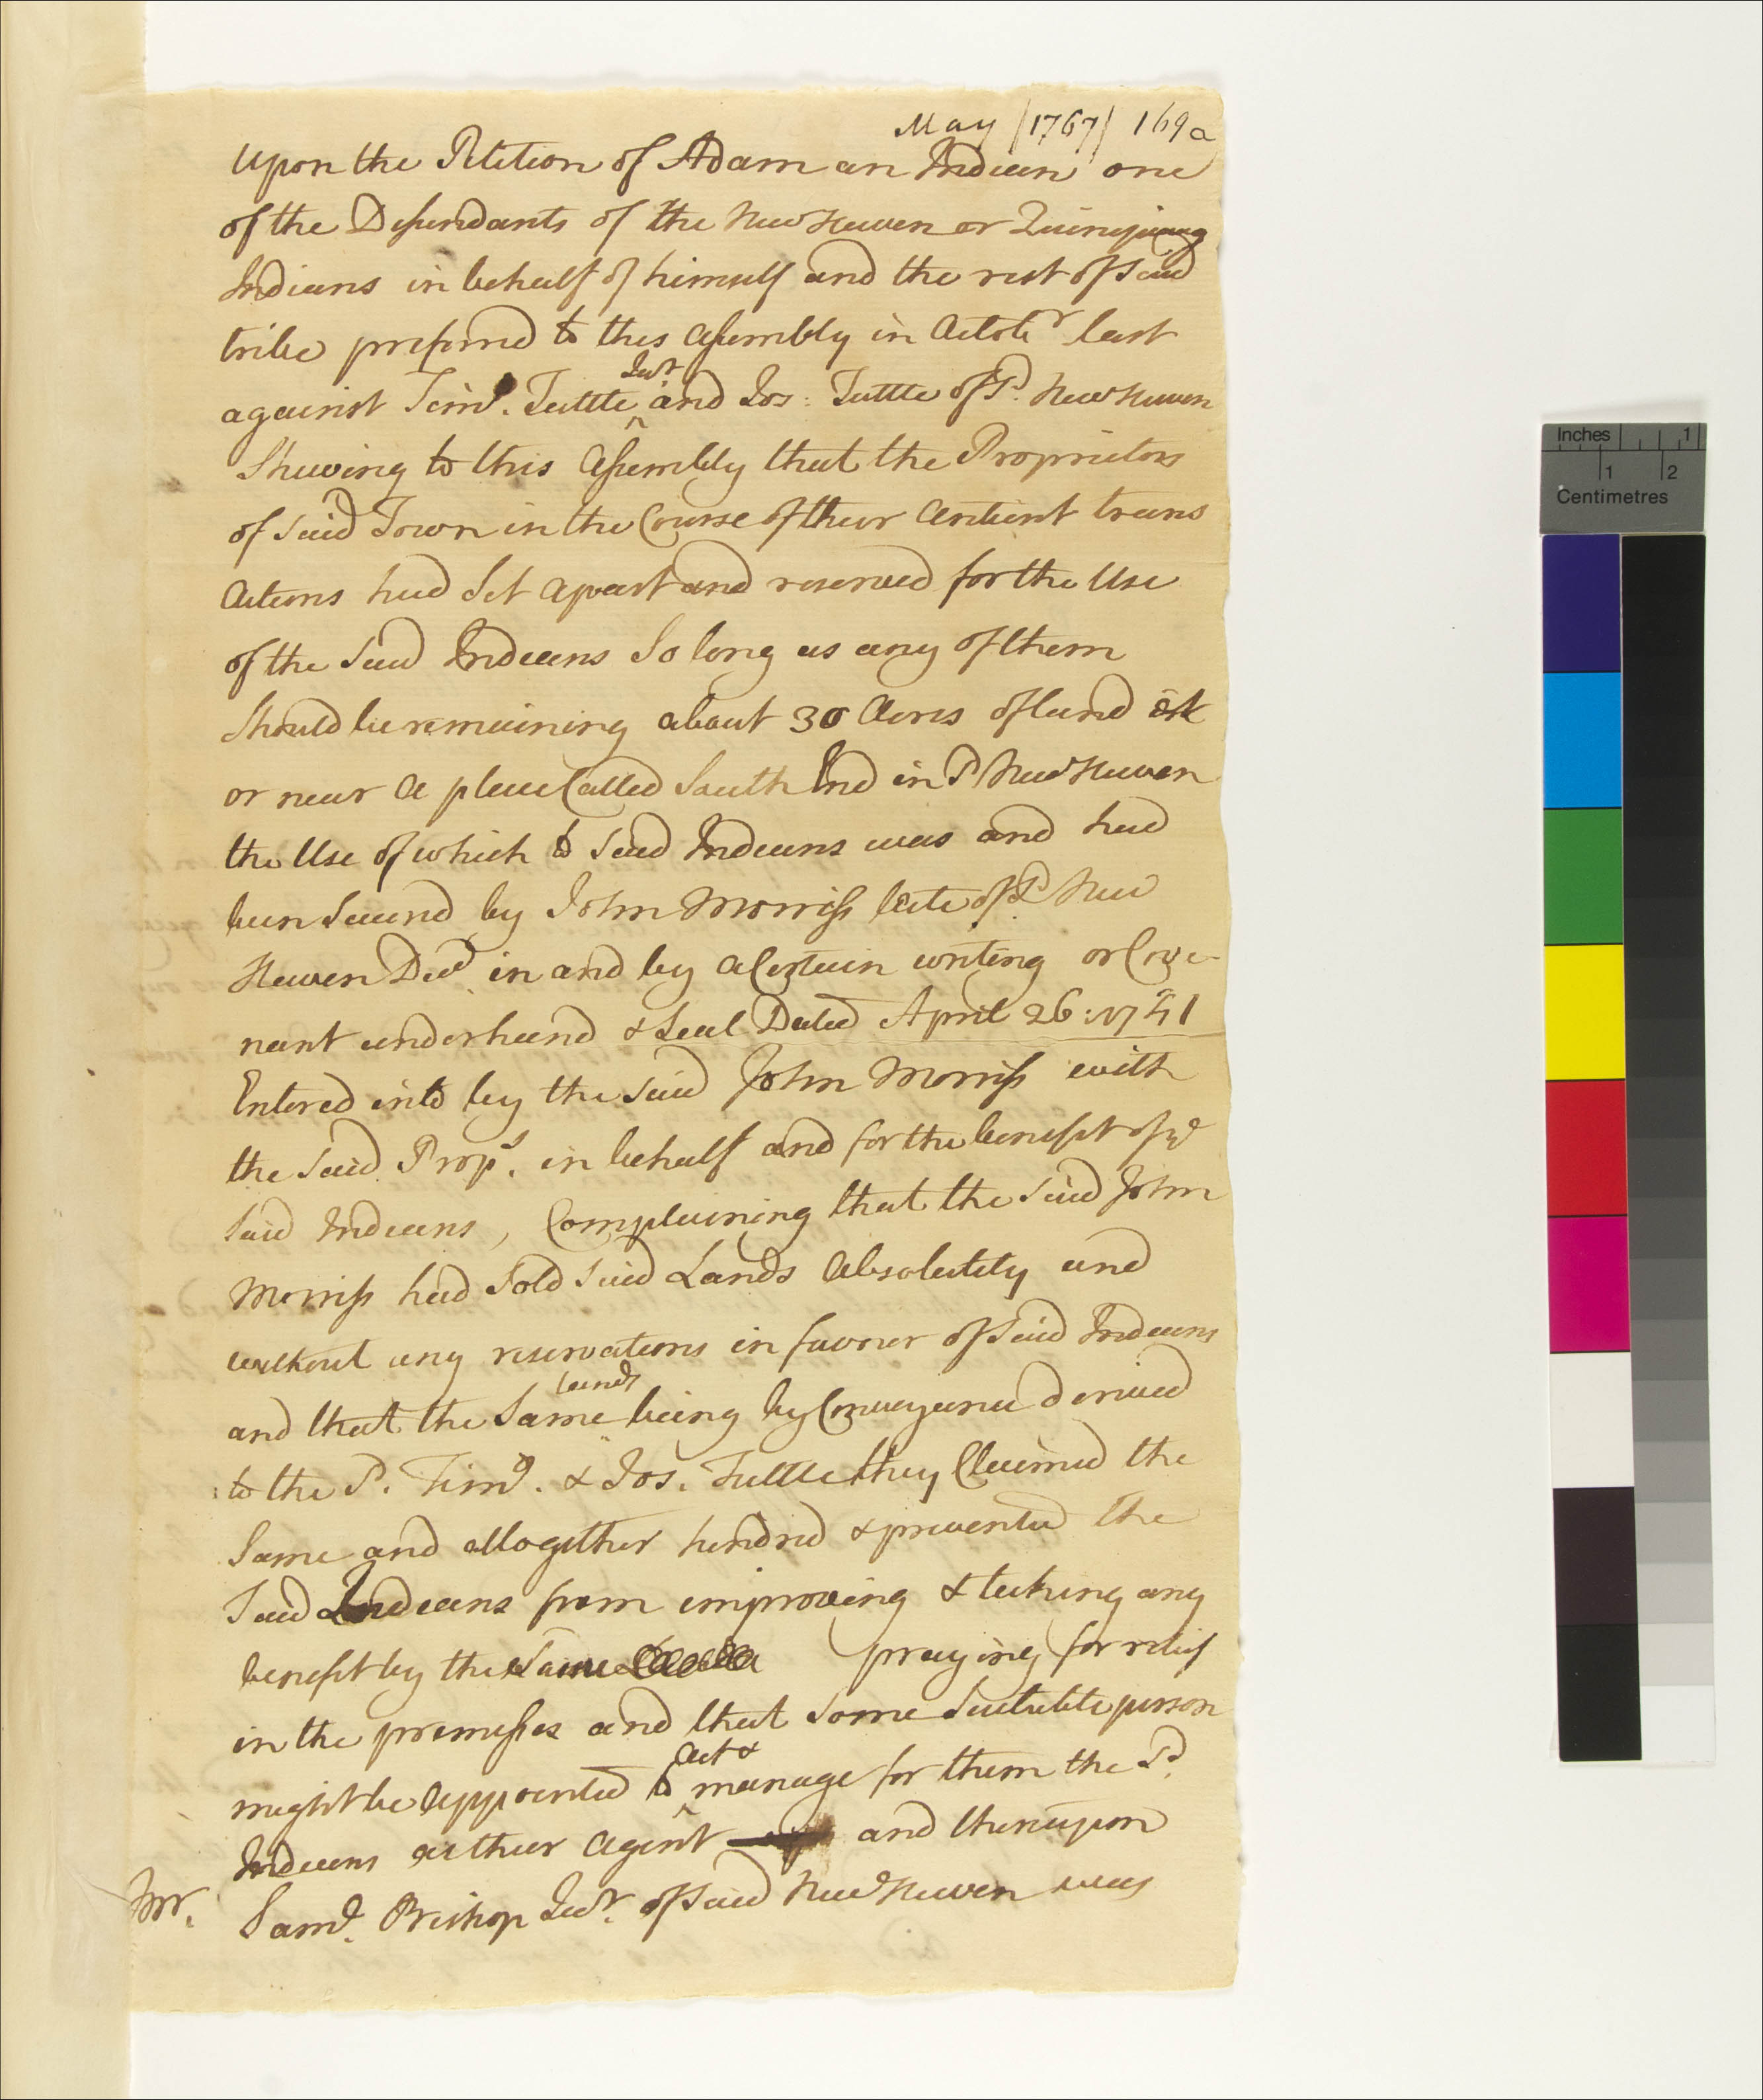 May [1767] 169a
Upon the Petition of Adam an Indian one
of the Desendants of the New Haven or Quinepiaug
Indians in behalf of himself and the rest of said
tribe prefered to this Assembly in Octobr last
against Timo. Tuttle Jur. and Jos: Tuttle of Sd. New Haven
Shewing to this Assembly that the Proprietors
of said Town in the Course of their Antient trans
actions had Set apart and reserved for the Use
of the said Indians So long as any of them
Should be remaining about 30 Acres of land at
or near a place Called South End in Sd New Haven
the Use of which to said Indians was and had
been Secured by John Morriss late of Sd. New
Haven Decd. in and by a Certain writing or Cove-
nant under hand & Seal Dated April 26: 1741
Entered into by the said John Morriss with
the said Props. in behalf and for the benefit of ye
said Indians, Complaining that the said John
Morriss had Sold said Lands Absolutely and
without any reservations in favour of said Indians
and that the Same lands being by Conveyance derived
to the Sd. Timo. & Jos. Tuttle they Claimed the
Same and altogether hindred & prevented the
Said Indians from improving & taking any
benefit by the Same praying for relief
in the premisses and that some Suitable person
might be Appointed to act & manage for them the Sd.
Indians as their Agent and thereupon
Mr. Saml. Bishop Jur. of said New Haven was
Inches 1
1 2
Centimetres